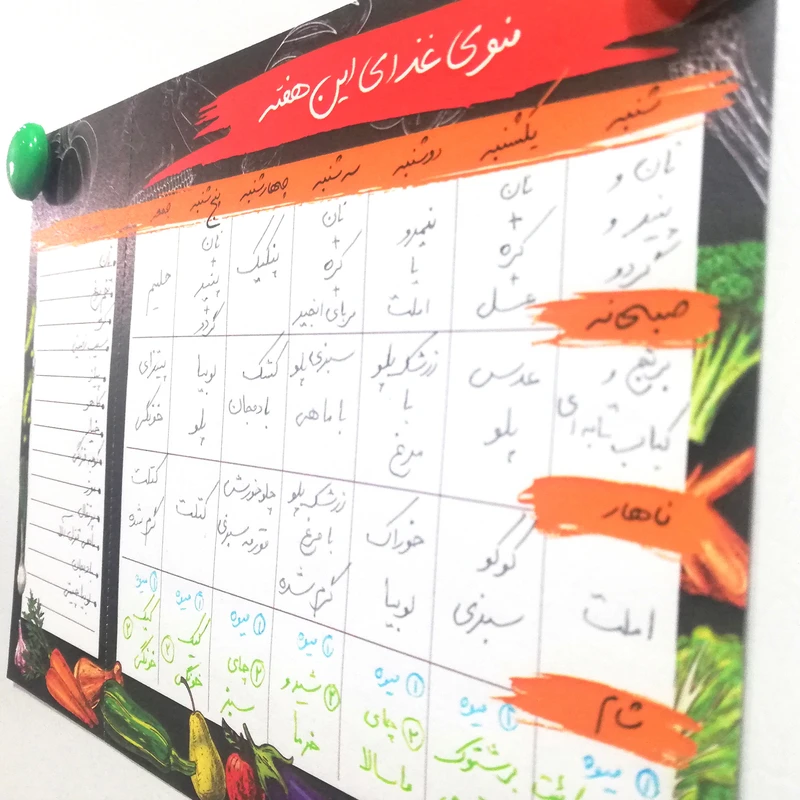 منوی غذای این هفته
شنبه
یکشنبه
دوشنبه
سه شنبه
چهارشنبه
پنج شنبه
جمعه
صبحانه
نان و
پنیر و
گردو
نان
+
کره
+
عسل
نیمرو
یا
املت
نان
+
کره
+
مربای انجیر
پنکیک
نان
+
پنیر
+
گردو
حلیم
ناهار
برنج و
کباب تابه ای
عدس
پلو
زرشک پلو
با
مرغ
سبزی پلو
با ماهی
کشک
بادمجان
لوبیا
پلو
پیتزای
خونگی
شام
املت
کوکو
سبزی
خوراک
لوبیا
زرشک پلو
با مرغ
گرم شده
چلو خورش
قورمه سبزی
کتلت
کتلت
گرم شده
۱ میوه
۱ میوه
برشتوک
۱ میوه
۲ چای
ماسالا
۱ میوه
۲ شیر و
خرما
۱ میوه
۲ چای
سبز
۱ میوه
۲ کیک
خونگی
۱ میوه
۲ کیک
خونگی
نان
پیاز
کاهو
خیار
موز
بادمجان